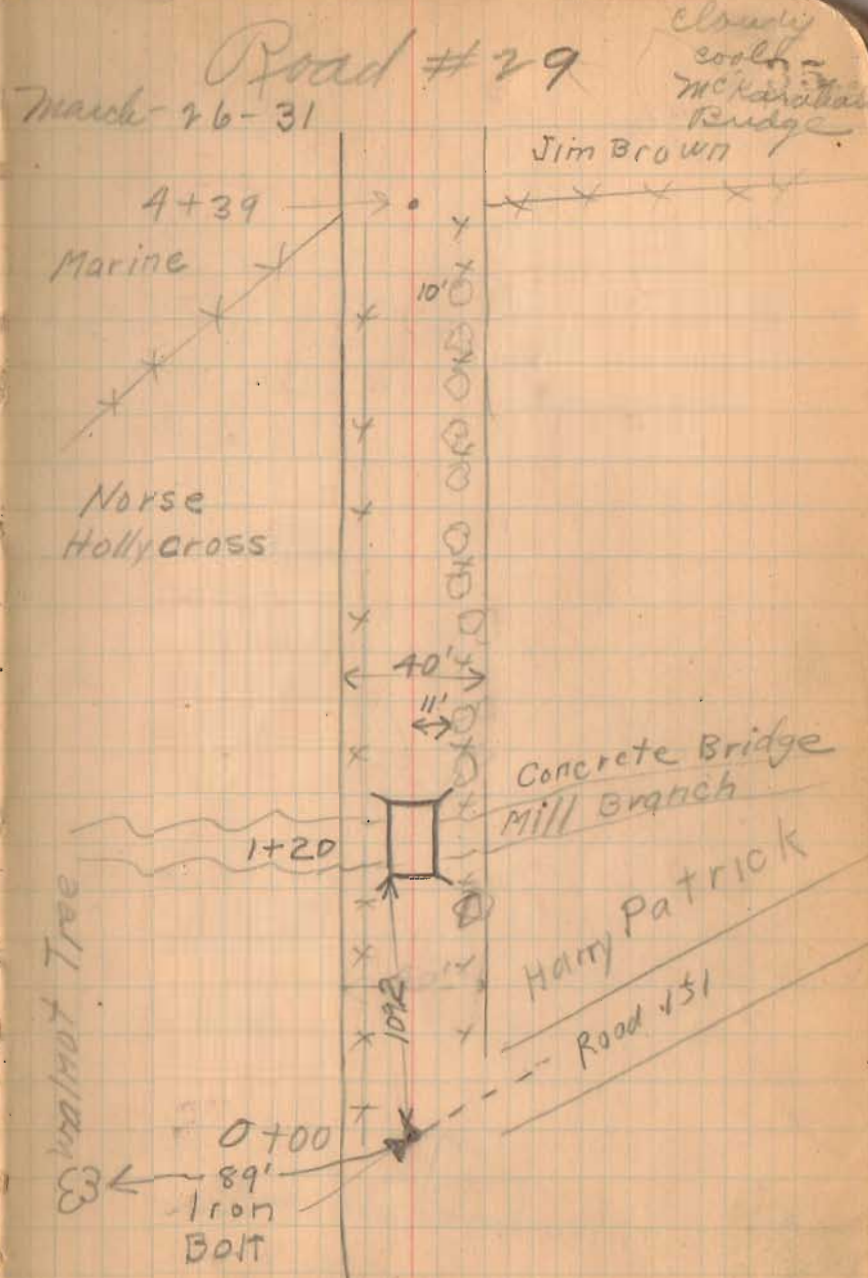 Road #29
cloudy
cool
Bridge
March-26-31
Jim Brown
4+39
Marine
10'
Norse
Hollycross
40'
11'
Concrete Bridge
Mill Branch
1+20
Harry Patrick
Walnut Tree
1092
Road 151
0+00
89'
Iron
Bolt